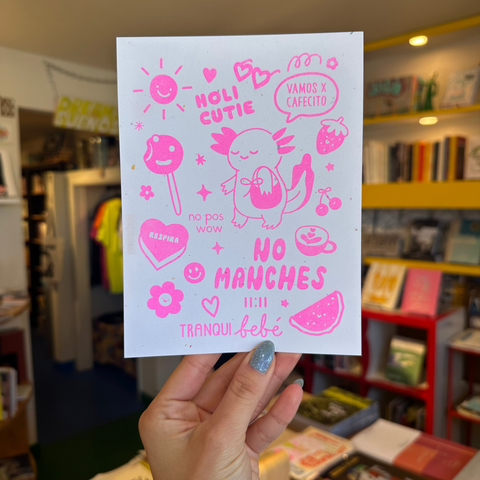 HOLI
CUTIE
VAMOS X
CAFECITO
no pos
wow
RESPIRA
NO
MANCHES
11:11
TRANQUI bebé